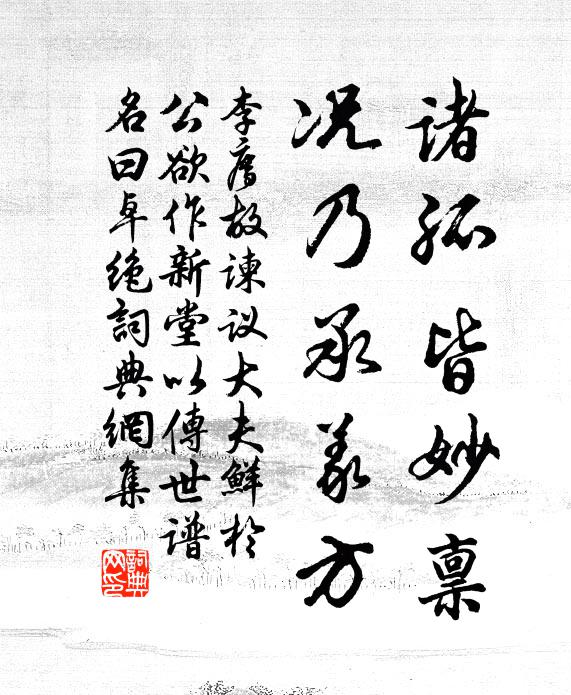 诸孤皆妙禀
况乃承义方
李廌故谏议大夫鲜于
公欲作新堂以傳世谱
名曰卓绝詞典網集
詞典
网印